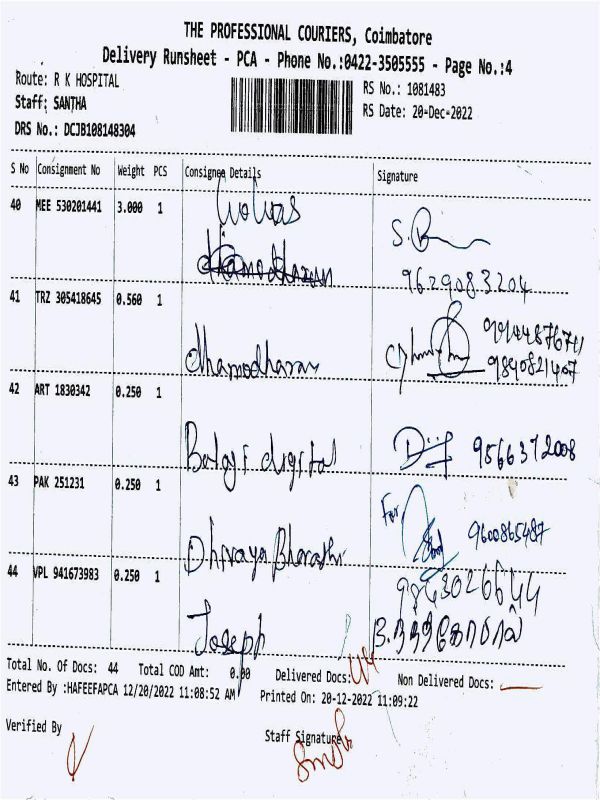 THE PROFESSIONAL COURIERS, Coimbatore
Delivery Runsheet - PCA - Phone No.:0422-3505555 - Page No.:4
Route: R K HOSPITAL
RS No.: 1081483
Staff: SANTHA
RS Date: 20-Dec-2022
DRS No.: DCJB108148304
S No Consignment No Weight PCS Consignee Details Signature
40 MEE 530201441 3.000 1
9629083204
41 TRZ 305418645 0.560 1
dhamodharan
9840821407
42 ART 1830342 0.250 1
Balaji digital 9566372008
43 PAK 251231 0.250 1
For 9600865487
Bharathi
44 VPL 941673983 0.250 1
9843026644
Joseph
Total No. Of Docs: 44 Total COD Amt: 0.00 Delivered Docs: 44 Non Delivered Docs: —
Entered By :HAFEEFAPCA 12/20/2022 11:08:52 AM Printed On: 20-12-2022 11:09:22
Verified By
Staff Signature